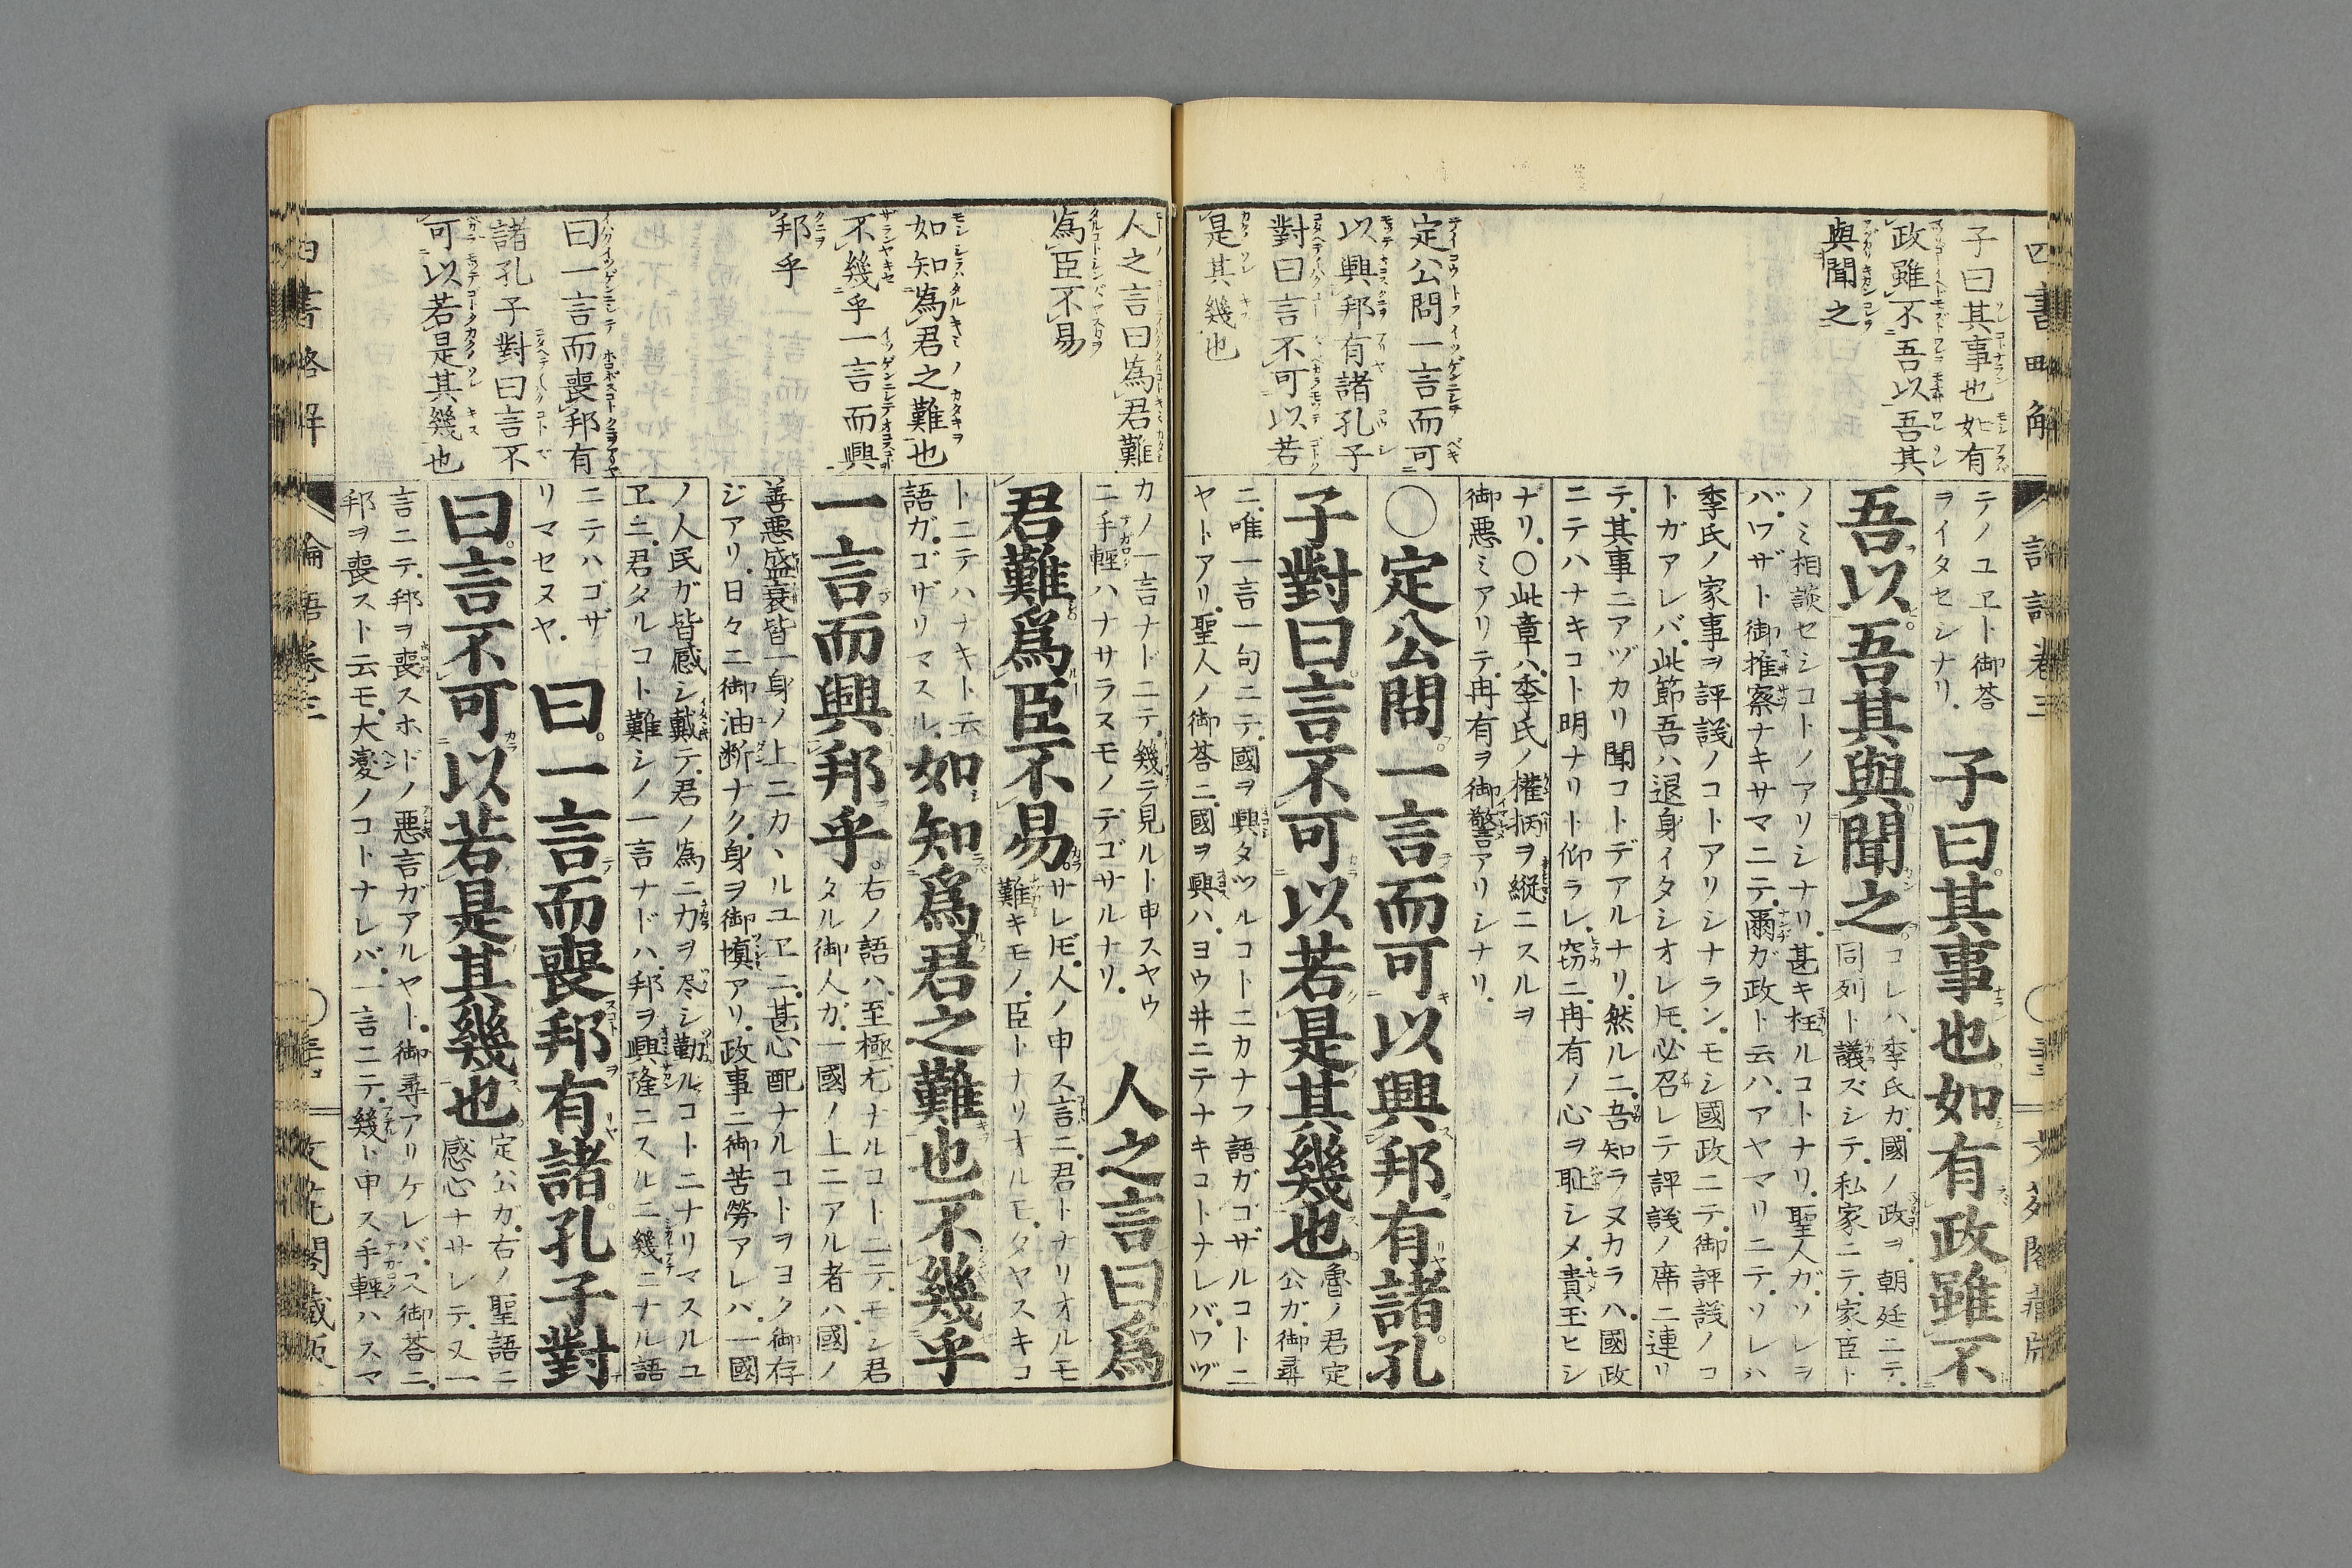 四書略解
子曰其事也如有
政雖不吾以吾其
與聞之
定公問一言而可
以興邦有諸孔子
對曰言不可以若
是其幾也
テノユヱト御荅
ヲイタセシナリ．
子曰其事也如有政雖不
吾以吾其與聞之
コレハ季氏ガ國ノ政ヲ．朝廷ニテ．
同列ト議ズシテ．私家ニテ．家臣ト
ノミ相談セシコトノアリシナリ．甚キ枉ルコトナリ．聖人ガ．ソレヲ
バ．ワザト御推察ナキサマニテ．爾ガ政ト云ハ．アヤマリニテ．ソレハ
季氏ノ家事ヲ評議ノコトアリシナラン．モシ國政ニテ．御評議ノコ
トガアレバ．此節吾ハ退身イタシオレ𪜈．必召レテ評議ノ席ニ連リ
テ．其事ニアヅカリ聞コトデアルナリ．然ルニ．吾知ラヌカラハ．國政
ニテハナキコト明ナリト仰ラレ．窃ニ．冉有ノ心ヲ恥シメ．責玉ヒシ
ナリ．〇此章ハ．季氏ノ權柄ヲ縦ニスルヲ
御悪ミアリテ．冉有ヲ御警アリシナリ．
〇定公問一言而可以興邦有諸孔
子對曰言不可以若是其幾也
魯ノ君定
公ガ．御尋
ニ．唯一言一句ニテ．國ヲ興タツルコトニカナフ語ガゴザルコトニ
ヤトアリ．聖人ノ御荅ニ．國ヲ興ハ．ヨウ井ニテナキコトナレバ．ワヅ
論語卷三
人之言曰爲君難
爲臣不易
如知爲君之難也
不幾乎一言而興
邦乎
曰一言而喪邦有
諸孔子對曰言不
可以若是其幾也
カノ一言ナドニテ．幾テ見ルト申スヤウ
ニ手輕ハナサラヌモノデゴサルナリ．
人之言曰爲
君難爲臣不易
サレ𪜈．人ノ申ス言ニ．君トナリオルモ
難キモノ．臣トナリオルモ．タヤスキコ
トニテハナキト云
語ガ．ゴザリマスル．
如知爲君之難也不幾乎
一言而興邦乎
右ノ語ハ．至極尤ナルコトニテ．モシ君
タル御人ガ．一國ノ上ニアル者ハ．國ノ
善悪盛衰皆一身ノ上ニカヽルユヱニ．甚心配ナルコトヲヨク御存
ジアリ．日々ニ御油断ナク．身ヲ御慎アリ．政事ニ御苦勞アレバ．一國
ノ人民ガ皆感シ戴テ．君ノ爲ニ力ヲ尽シ勤ルコトニナリマスルユ
ヱニ．君タルコト難シノ一言ナドハ．邦ヲ興隆ニスルニ幾ニナル語
ニテハゴザ
リマセヌヤ．
曰一言而喪邦有諸孔子對
曰言不可以若是其幾也
定公ガ．右ノ聖語ニ
感心ナサレテ．又一
言ニテ．邦ヲ喪スホドノ悪言ガアルヤト．御尋アリケレバ．又御荅ニ．
邦ヲ喪スト云モ．大變ノコトナレバ．一言ニテ．幾ト申ス手輕ハスマ
論語卷三